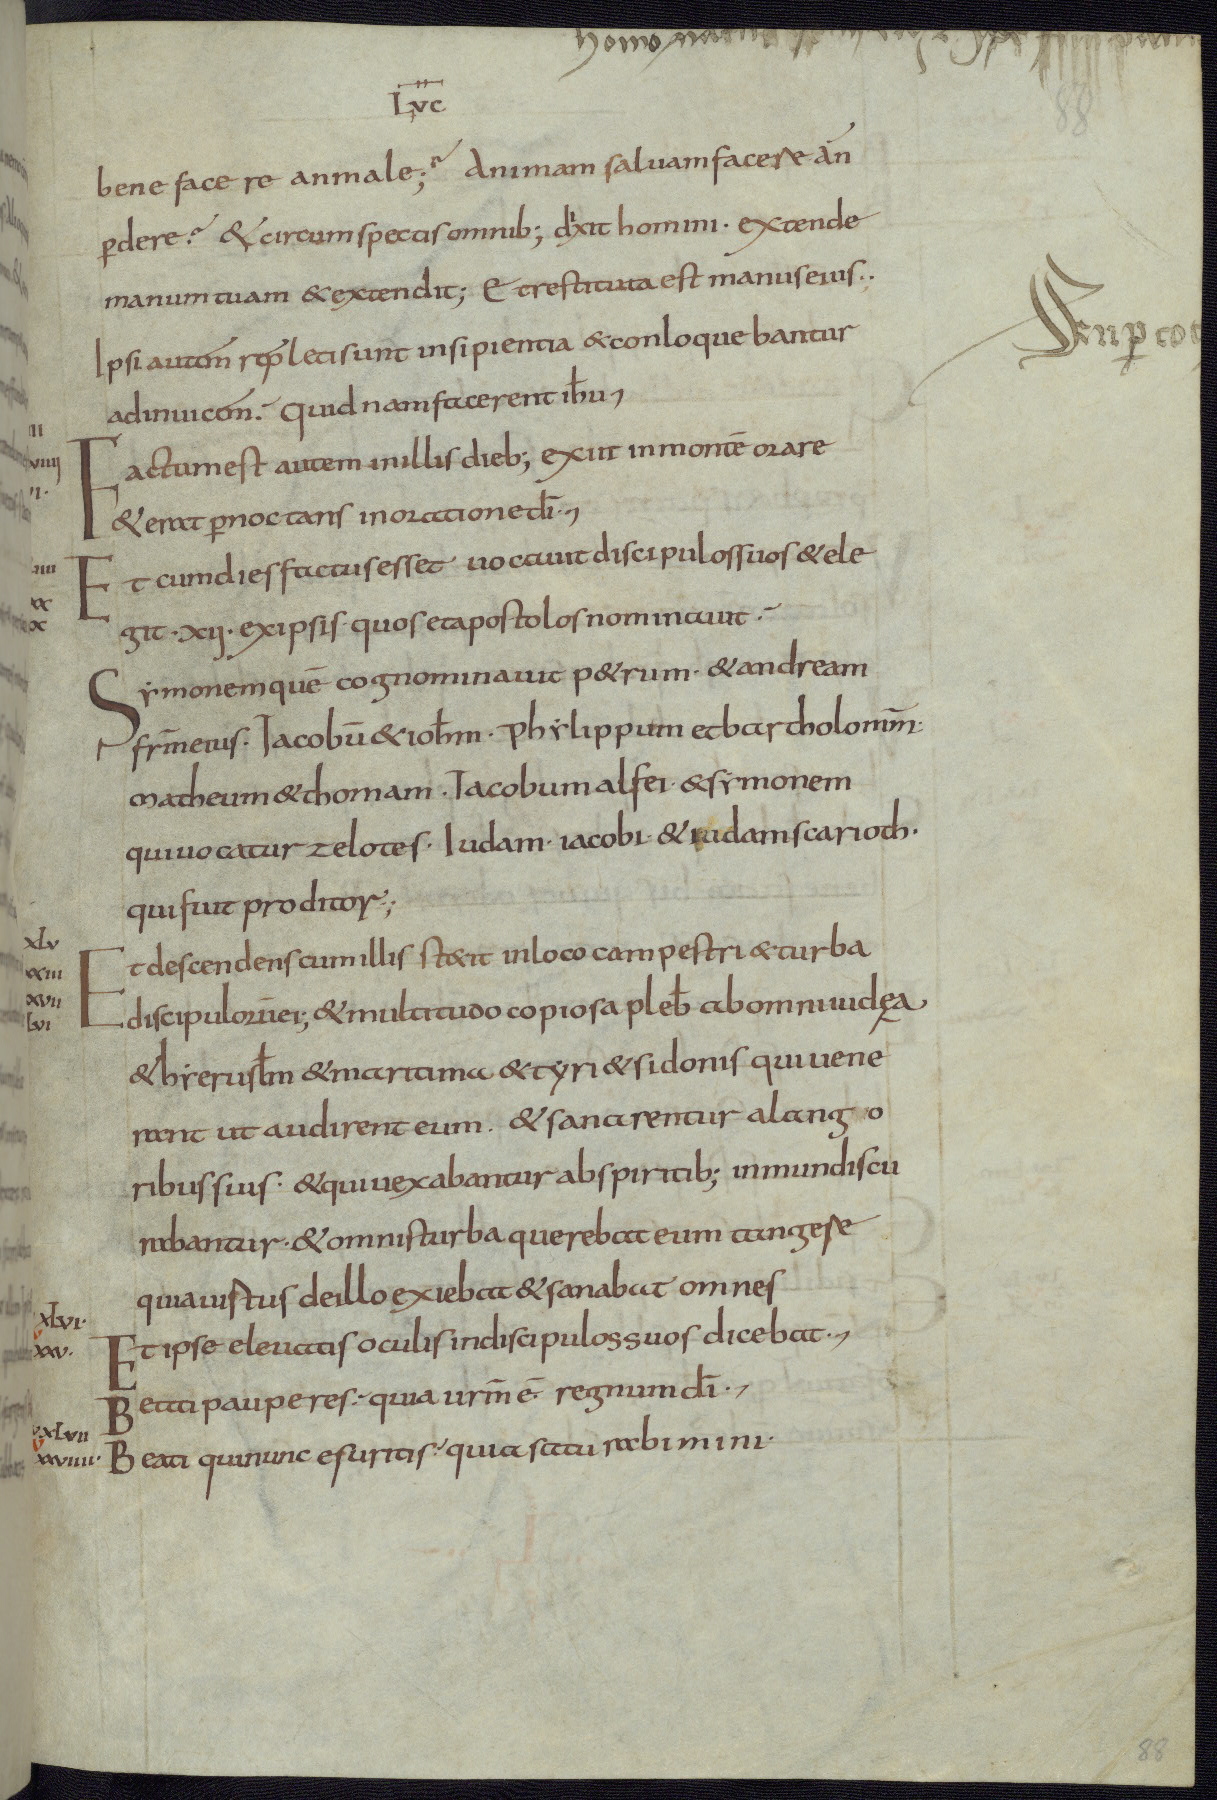 LVC
88
bene facere an male;? Animam saluam facere án
ꝑdere? & circum spectis omnib; dxit homini · extende
manum tuam & extendit; Et restituta est manus eius··
Ipsi autem repleti sunt insipientia & conloquebantur
adinuicem? Quid nam facerent ihu,
Factum est autem in illis dieb; exiit in montē orare
& erat ꝑnoctans in oratione dī·,
Et cum dies factus esset uocauit discipulos suos & ele
git · xij · ex ipsis · quos et apostolos nominauit·
Symonem quē cognominauit p&rum · & andream
frm eius · Iacobū & iohm · Phylippum et bartholomm·
matheum & thomam · Iacobum alfei · & symonem
qui uocatur zelotes · Iudam · iacobi · & iudam scarioth ·
qui fuit proditor;
Et descendens cum illis st&it in loco campestri & turba
discipulorū ei; & multitudo copiosa pleb ab omni iudęa,
& hyeruslm & maritima & tyri & sidonis qui uene
rant ut audirent eum · & sanarentur a lango
ribus suis · & qui uexabantur ab spiritib; inmundis cu
rabantur · & omnis turba querebat eum tangere
quia uirtus de illo exiebat & sanabat omnes
Et ipse eleuatis oculis in discipulos suos dicebat·,
Beati pauperes · quia urm ē regnum dī·,
Beati qui nunc esuritis · quia saturabimini ·
Senp
xlv
xxiii
xvii
lvi
xlvi·
xxv·
xlvii
xxviiii·
88